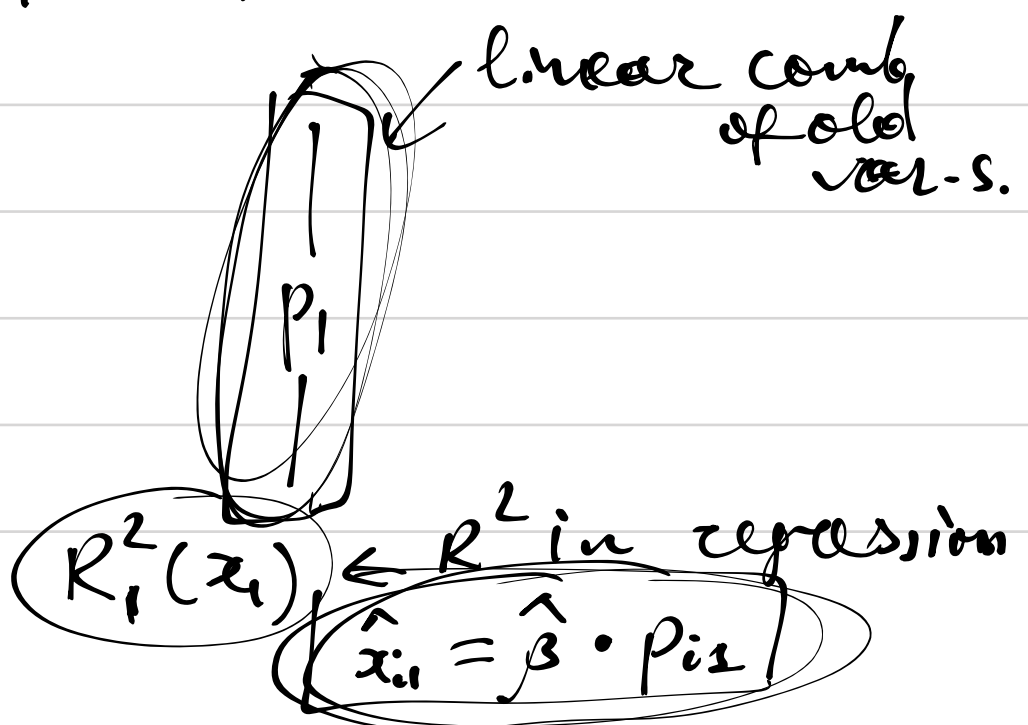 linear comb
of old
var-s.
p₁
R₁²(x₁) ← R² in regression
x̂ᵢ₁ = β̂ · pᵢ₁